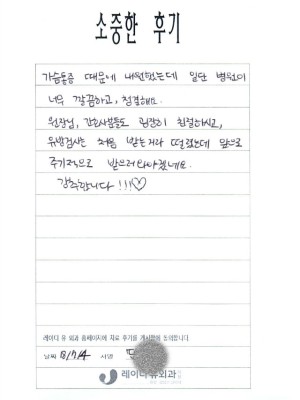 소중한 후기
가슴통증 때문에 내원했는데 일단 병원이
너무 깔끔하고, 청결해요.
원장님, 간호사분들도 굉장히 친절하시고,
유방검사는 처음 받는거라 떨렸는데 앞으로
주기적으로 받으러와야겠네요.
강추합니다!!!♡
레이디 유 외과 홈페이지에 치료 후기를 게시함을 동의합니다.
날짜 서명
레이디유외과